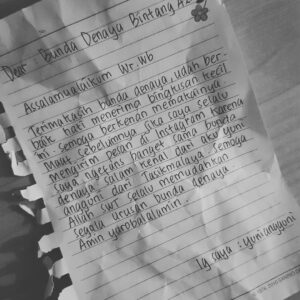 Dear : Bunda Denaya Bintang Az
Assalamualaikum Wr.Wb
Terimakasih bunda denaya, udah ber-
baik hati menerima bingkisan kecil
ini. semoga berkenan memakainya.
Maaf sebelumnya jika saya selalu
mengirim pesan di Instagram karena
saya ngefans banget sama bunda
denaya. salam kenal dari aku yuni
angguni dari Tasikmalaya. Semoga
Allah swt selalu memudahkan
segala urusan bunda denaya
Amin yarobalalamin.
Ig saya : yunianggyuni